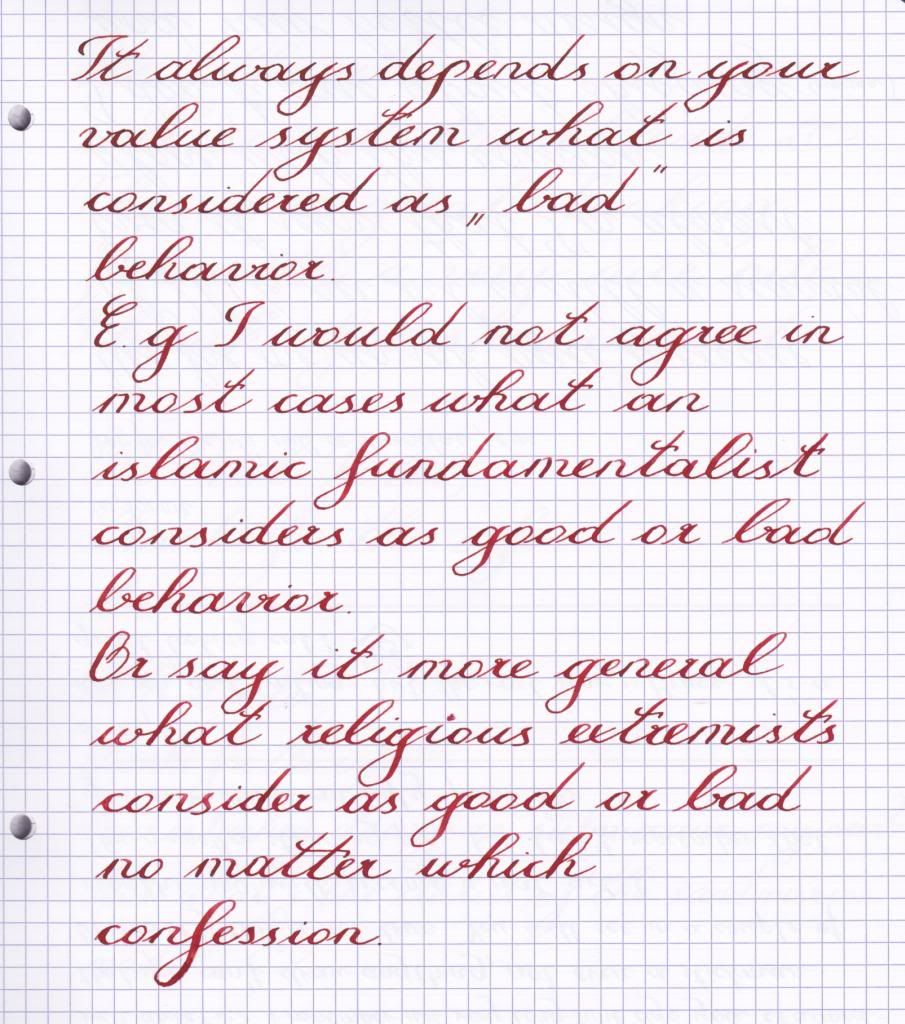 It always depends on your
value system what is
considered as „bad"
behavior.
E.g I would not agree in
most cases what an
islamic fundamentalist
considers as good or bad
behavior.
Or say it more general
what religious extremists
consider as good or bad
no matter which
confession.